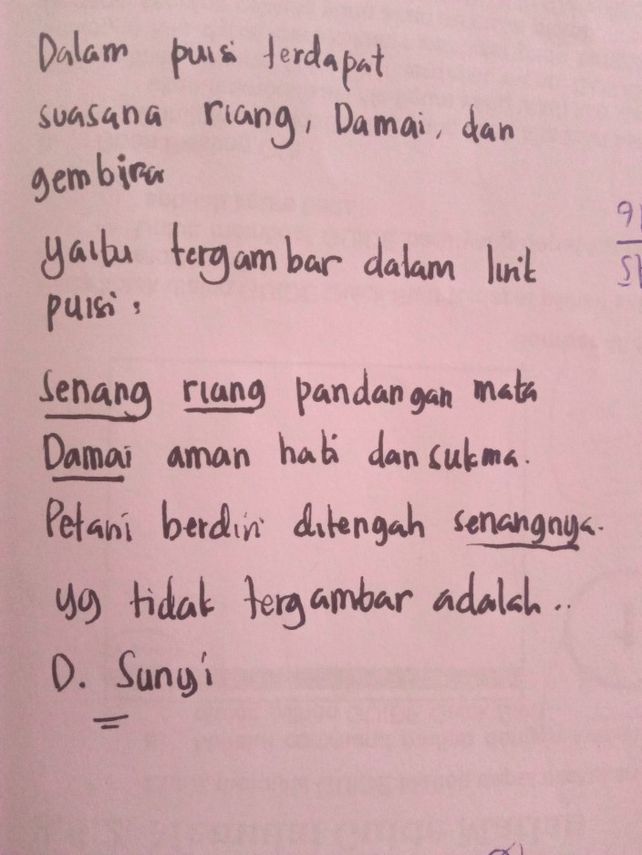 Dalam puisi terdapat
suasana riang, Damai, dan
gembira
yaitu tergambar dalam lirik
puisi :
Senang riang pandangan mata
Damai aman hati dan sukma.
Petani berdiri ditengah senangnya.
yg tidak tergambar adalah..
D. Sunyi